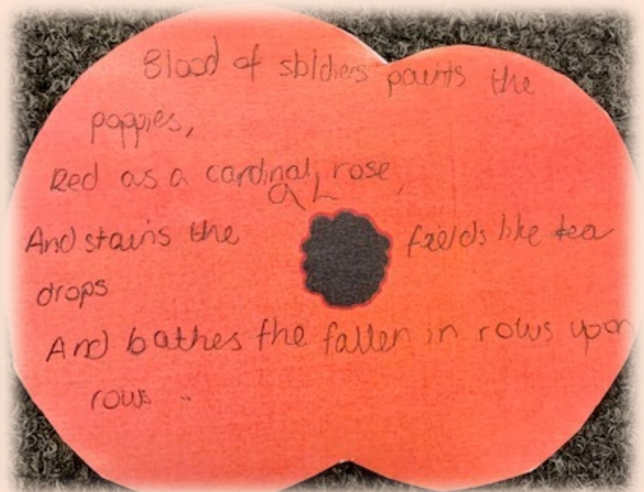 Blood of soldiers paints the
poppies,
Red as a cardinal rose,
And stains the fields like tea
drops
And bathes the fallen in rows upon
rows